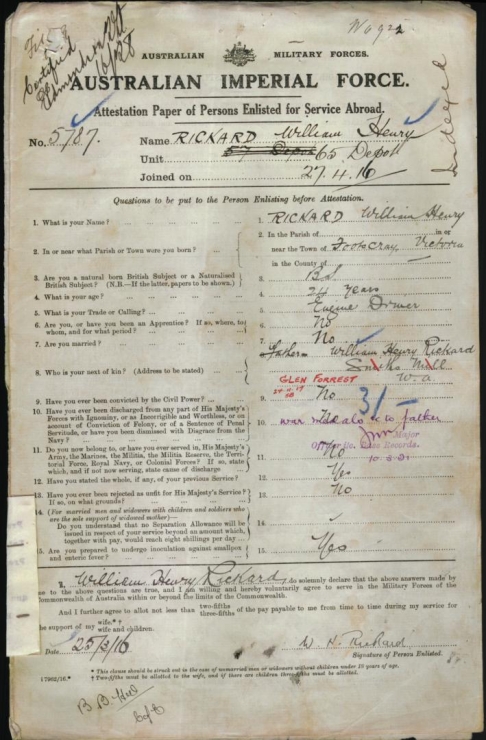 W6922
Certified
AUSTRALIAN MILITARY FORCES.
AUSTRALIAN IMPERIAL FORCE.
Attestation Paper of Persons Enlisted for Service Abroad.
Indexed
No. 5787. Name RICKARD William Henry
Unit 65 Depot
Joined on 27.4.16
Questions to be put to the Person Enlisting before Attestation.
1. What is your Name? 1. RICKARD William Henry
2. In or near what Parish or Town were you born? 2. In the Parish of in or
near the Town of Footscray, Victoria
in the County of
3. Are you a natural born British Subject or a Naturalised
British Subject? (N.B.—If the latter, papers to be shown.) 3. B.S.
4. What is your age? 4. 24 years
5. What is your Trade or Calling? 5. Engine Driver
6. Are you, or have you been an Apprentice? If so, where, to
whom, and for what period? 6. No
7. Are you married? 7. No
8. Who is your next of kin? (Address to be stated) 8. Father William Henry Rickard
Smiths Mill
GLEN FORREST W.A.
9. Have you ever been convicted by the Civil Power? 9. No
31/-
10. Have you ever been discharged from any part of His Majesty's
Forces with Ignominy, or as Incorrigible and Worthless, or on
account of Conviction of Felony, or of a Sentence of Penal
Servitude, or have you been dismissed with Disgrace from the
Navy? 10. No
father
Major
Officer i/c. Base Records.
10.6.21
11. Do you now belong to, or have you ever served in, His Majesty's
Army, the Marines, the Militia, the Militia Reserve, the Territorial
Force, Royal Navy, or Colonial Forces? If so, state
which, and if not now serving, state cause of discharge 11. No
12. Have you stated the whole, if any, of your previous Service? 12. Yes
13. Have you ever been rejected as unfit for His Majesty's Service?
If so, on what grounds? 13. No
14. (For married men and widowers with children and soldiers who
are the sole support of widowed mother)—
Do you understand that no Separation Allowance will be
issued in respect of your service beyond an amount which,
together with pay, would reach eight shillings per day 14.
15. Are you prepared to undergo inoculation against smallpox
and enteric fever? 15. Yes
I, William Henry Rickard, do solemnly declare that the above answers made by
me to the above questions are true, and I am willing and hereby voluntarily agree to serve in the Military Forces of the
Commonwealth of Australia within or beyond the limits of the Commonwealth.
And I further agree to allot not less than two-fifths three-fifths of the pay payable to me from time to time during my service for
the support of my wife.* †
wife and children.
Date 25/3/16 W. H. Rickard
Signature of Person Enlisted.
* This clause should be struck out in the case of unmarried men or widowers without children under 18 years of age.
17962/16.* † Two-fifths must be allotted to the wife, and if there are children three-fifths must be allotted.